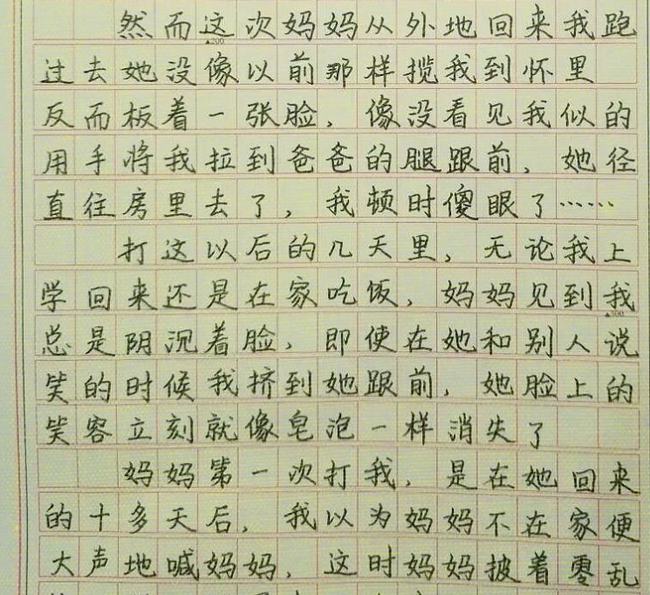 然而这次妈妈从外地回来我跑
▲200
过去她没像以前那样揽我到怀里
反而板着一张脸，像没看见我似的
用手将我拉到爸爸的腿跟前，她径
直往房里去了，我顿时傻眼了……
打这以后的几天里，无论我上
学回来还是在家吃饭，妈妈见到我
▲300
总是阴沉着脸，即使在她和别人说
笑的时候我挤到她跟前，她脸上的
笑容立刻就像皂泡一样消失了
妈妈第一次打我，是在她回来
的十多天后，我以为妈妈不在家便
大声地喊妈妈，这时妈妈披着零乱